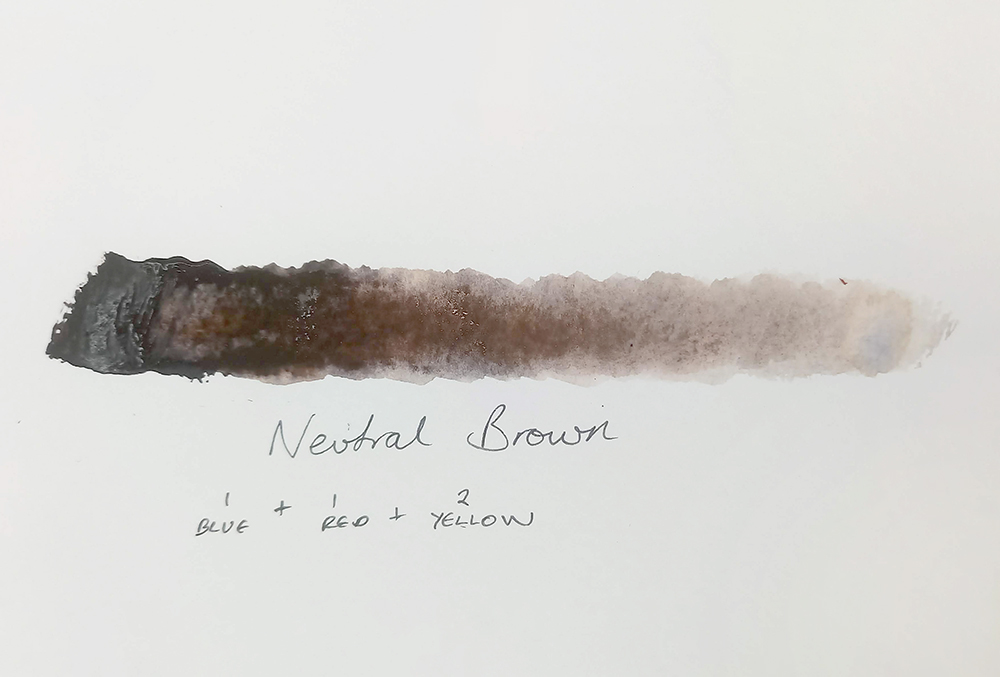 Neutral Brown
1 BLUE + 1 RED + 2 YELLOW